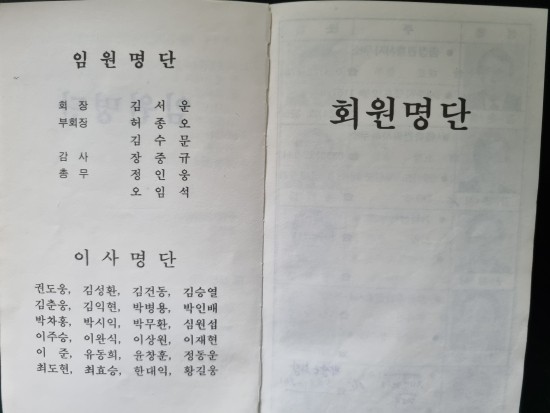 임원명단
회장 김서운
부회장 허종오
김수문
감사 장중규
총무 정인웅
오임석
이사명단
권도웅, 김성환, 김건동, 김승열
김춘웅, 김익현, 박병용, 박인배
박차홍, 박시익, 박무환, 심원섭
이주승, 이완식, 이상원, 이재현
이준, 유동희, 윤창훈, 정동운
최도현, 최효승, 한대익, 황길웅
회원명단